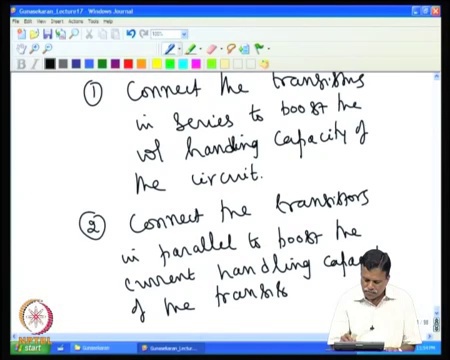 Gunasekaran_Lecture17 - Windows Journal
File Edit View Insert Actions Tools Help
① Connect the transistors
in series to boost the
vol handling capacity of
the circuit.
② Connect the transistors
in parallel to boost the
current handling capac
of the transits
NPTEL
start
Gunasekaran
Gunasekaran_Lectu...